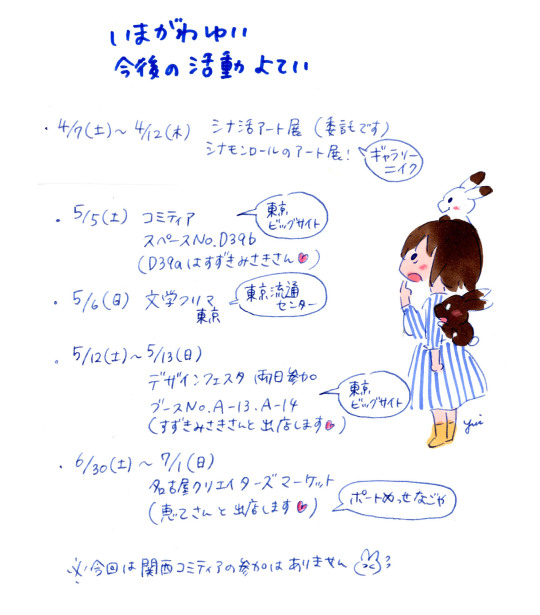 いまがわゆい
今後の活動よてい
・4/7(土)～4/12(木) シナ活アート展(委託です)
シナモンロールのアート展!
ギャラリー
ニイク
・5/5(土) コミティア
東京
ビッグサイト
スペースNo.D39b
(D39aはすずきみさきさん♥)
・5/6(日) 文学フリマ
東京
東京流通
センター
。5/12(土)～5/13(日)
デザインフェスタ 両日参加
東京
ビッグサイト
ブースNo.A-13.A-14
(すずきみさきさんと出店します♥)
・6/30(土)～7/1(日)
名古屋クリエイターズマーケット
(恵てさんと出店します♥)
ポートめっせなごや
※今回は関西コミティアの参加はありません
yui